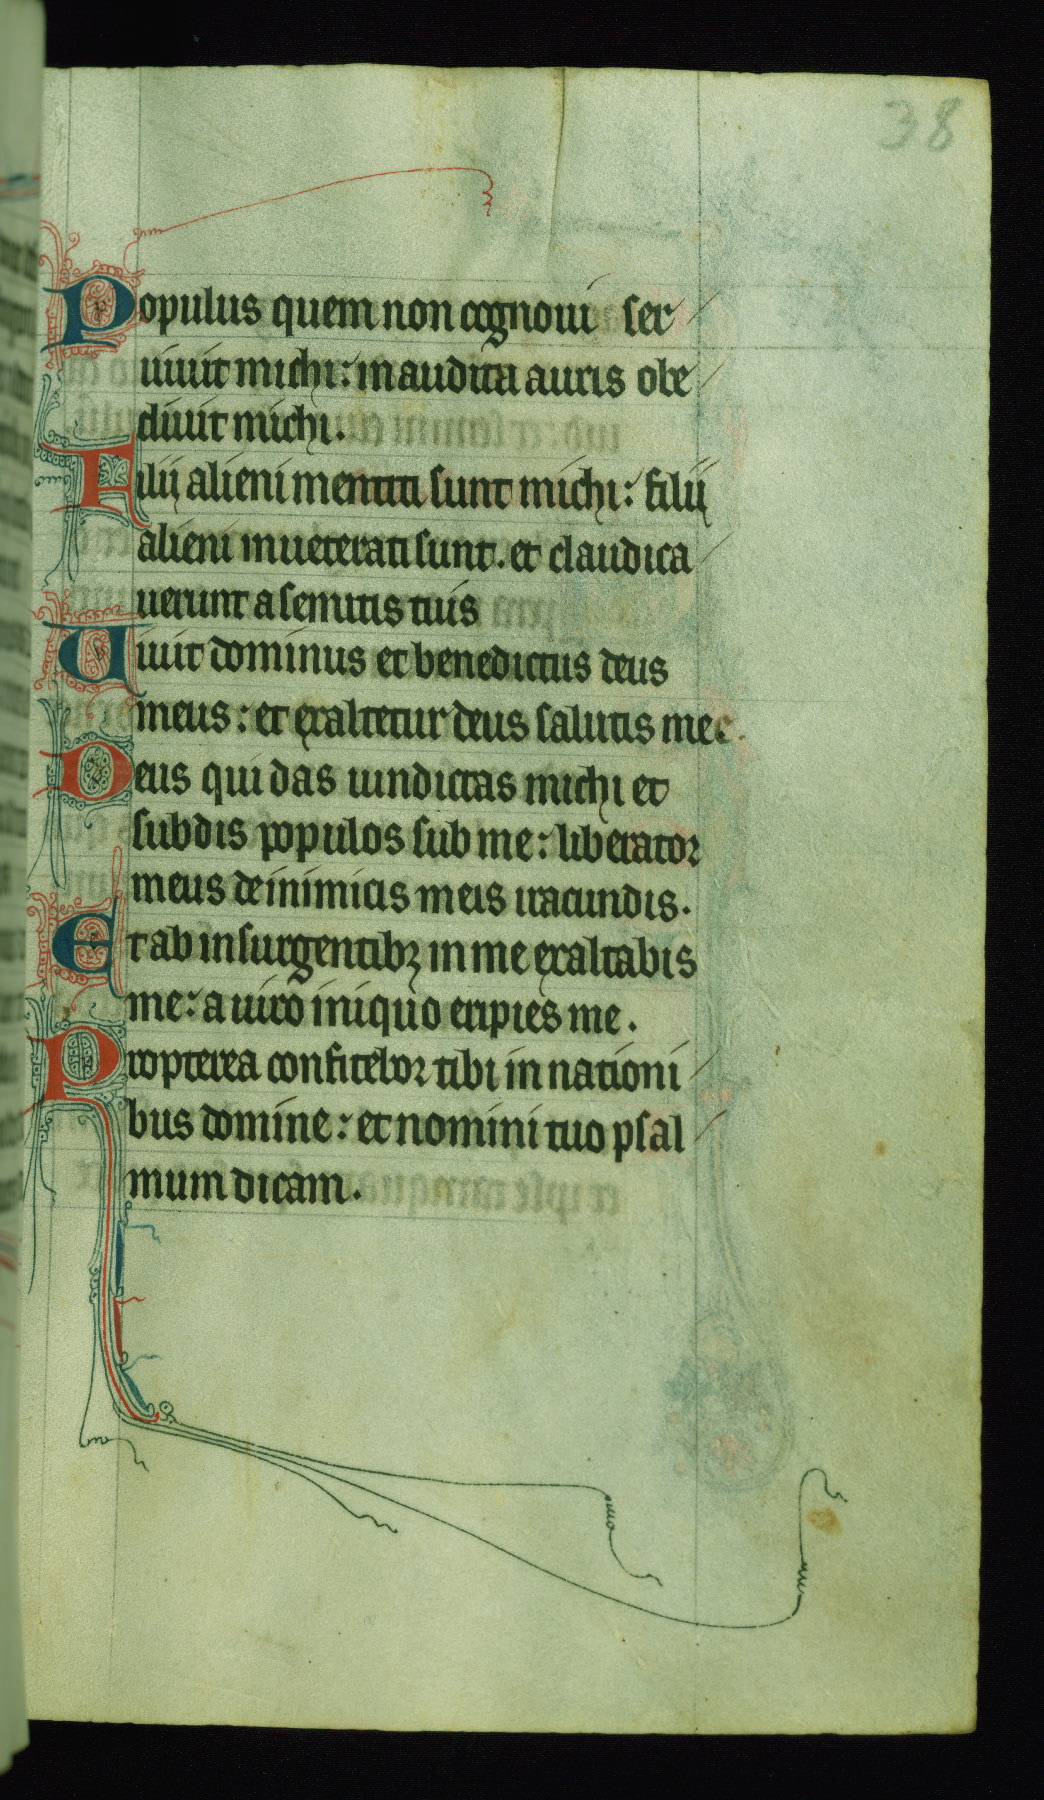 38
Populus quem non cognoui ser
uiuit michi: in auditu auris obe
diuit michi.
Filij alieni mentiti sunt michi: filij
alieni inueterati sunt. et claudica
uerunt a semitis tuis
Uiuit dominus et benedictus deus
meus: et exaltetur deus salutis mee.
Deus qui das uindictas michi et
subdis populos sub me: liberator
meus de inimicis meis iracundis.
Et ab insurgentibꝫ in me exaltabis
me: a uiro iniquo eripies me.
Propterea confitebor tibi in nationi
bus domine: et nomini tuo psal
mum dicam.